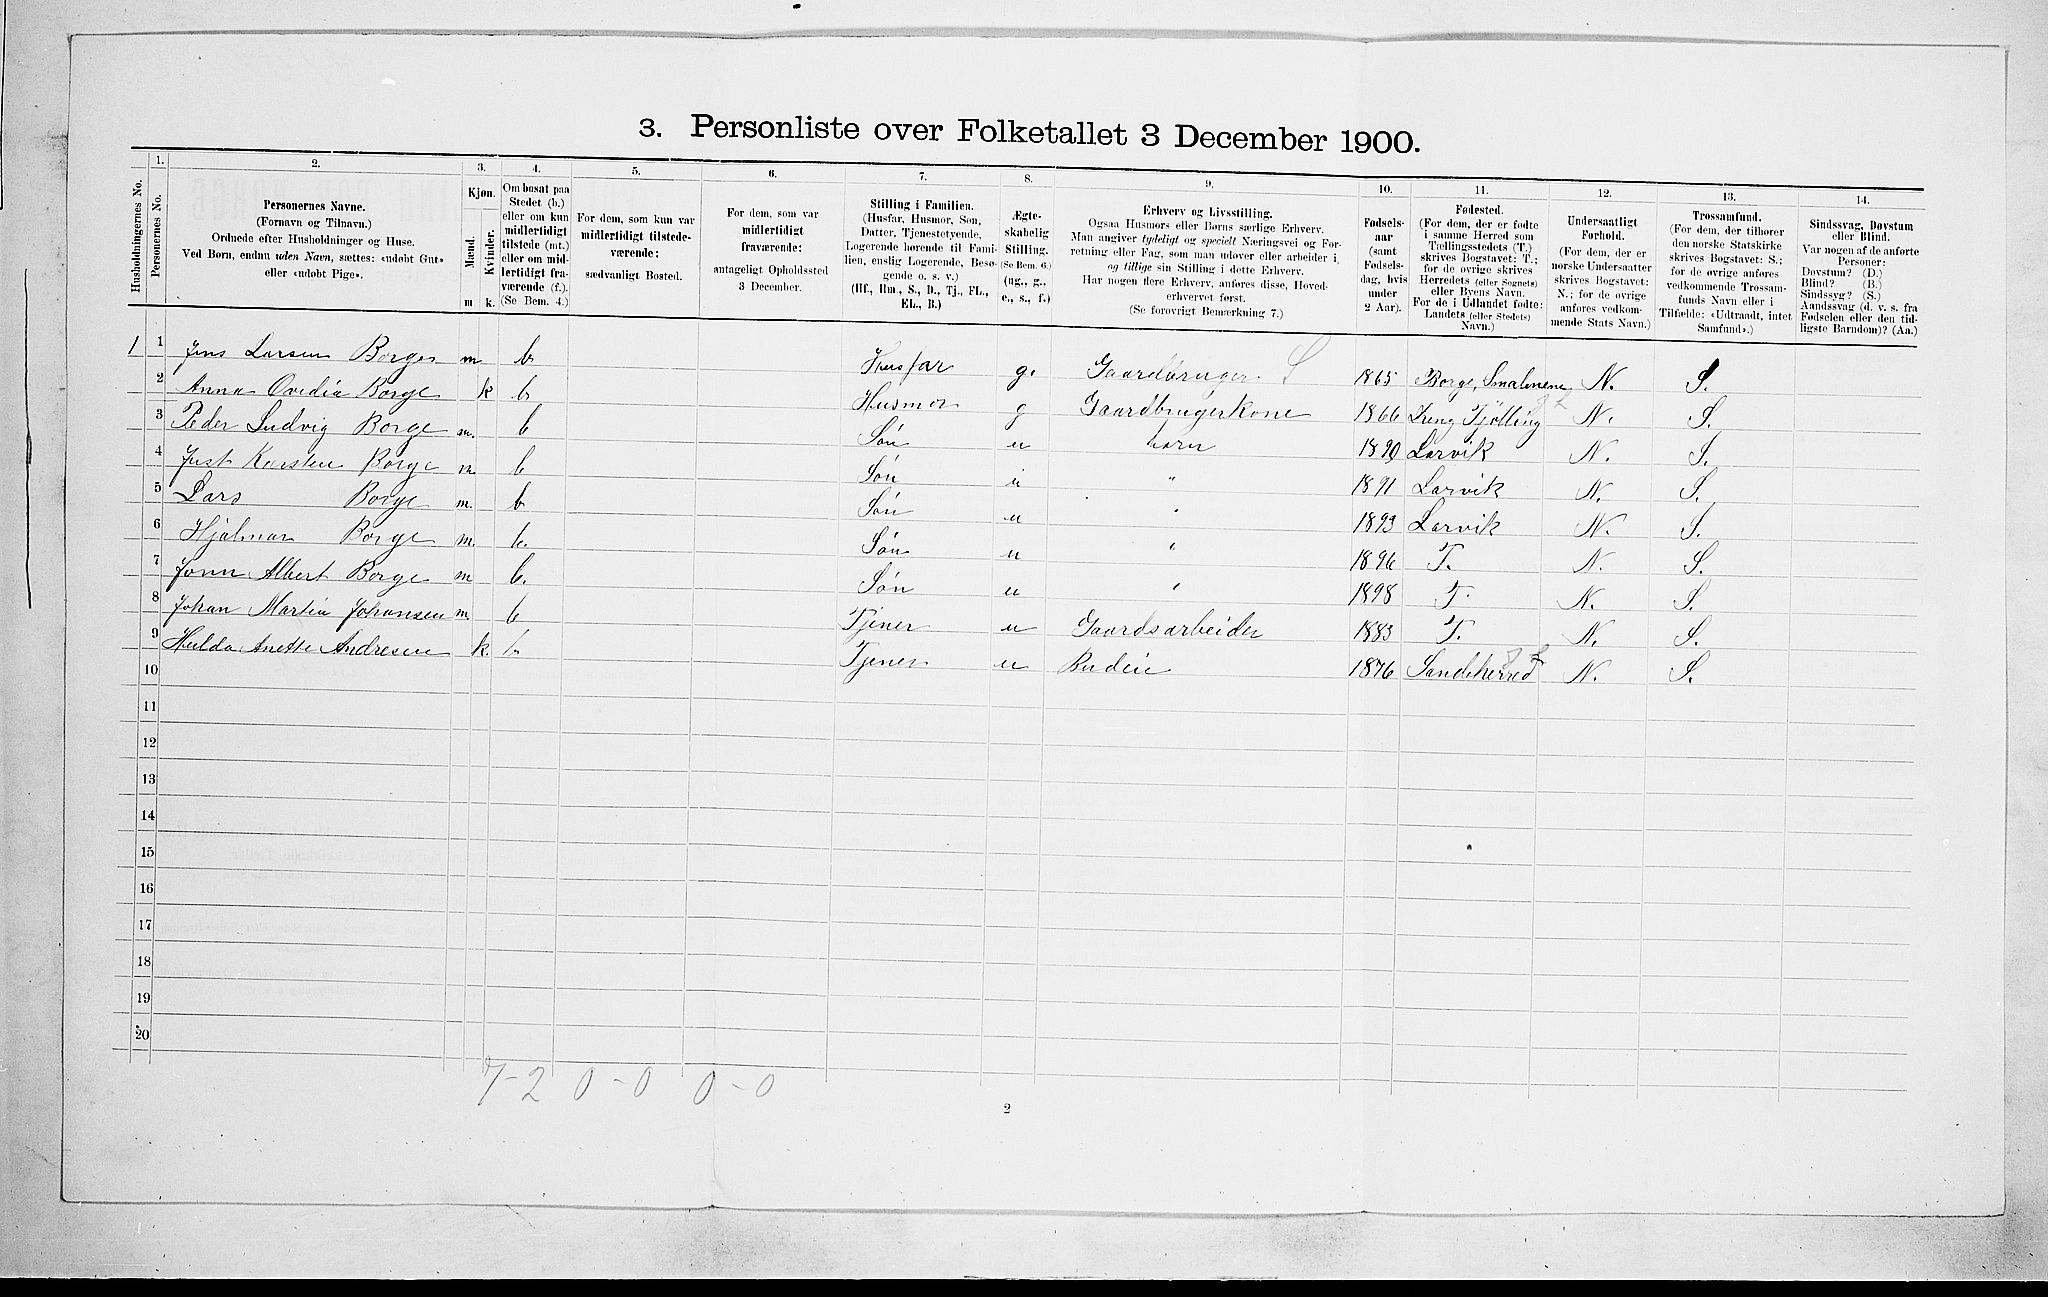 3. Personliste over Folketallet 3 December 1900.
Husholdningernes No.
1. Personernes No.
2. Personernes Navne.
(Fornavn og Tilnavn.)
Ordnede efter Husholdninger og Huse.
Ved Børn, endnu uden Navn, sættes: «udøbt Gut»
eller «udøbt Pige».
3. Kjøn.
Mænd. Kvinder.
m k.
4. Om bosat paa
Stedet (b.)
eller om kun
midlertidigt
tilstede (mt.)
eller om mid-
lertidigt fra-
værende (f.).
(Se Bem. 4.)
5. For dem, som kun var
midlertidigt tilstede-
værende:
sædvanligt Bosted.
6. For dem, som var
midlertidigt
fraværende:
antageligt Opholdssted
3 December.
7. Stilling i Familien.
(Husfar, Husmor, Søn,
Datter, Tjenestetyende,
Logerende hørende til Fami-
lien, enslig Logerende, Besø-
gende o. s. v.)
(Hf., Hm., S., D., Tj., FL.,
EL., B.)
8. Ægte-
skabelig
Stilling.
(Se Bem. 6.)
(ug., g.,
e., s., f.)
9. Erhverv og Livsstilling.
Ogsaa Husmors eller Børns særlige Erhverv.
Man angiver tydeligt og specielt Næringsvei og For-
retning eller Fag, som man udøver eller arbeider i,
og tillige sin Stilling i dette Erhverv.
Har nogen flere Erhverv, anføres disse, Hoved-
erhvervet først.
(Se forøvrigt Bemærkning 7.)
10. Fødsels-
aar
(samt
Fødsels-
dag, hvis
under
2 Aar).
11. Fødested.
(For dem, der er fødte
i samme Herred som
Tællingsstedets (T.)
skrives Bogstavet: T.;
for de øvrige skrives
Herredets (eller Sognets)
eller Byens Navn.
For de i Udlandet fødte:
Landets (eller Stedets)
Navn.)
12. Undersaatligt
Forhold.
(For dem, der er
norske Undersaatter
skrives Bogstavet:
N.; for de øvrige
anføres vedkom-
mende Stats Navn.)
13. Trossamfund.
(For dem, der tilhører
den norske Statskirke
skrives Bogstavet: S.;
for de øvrige anføres
vedkommende Trossam-
funds Navn eller i
Tilfælde: «Udtraadt, intet
Samfund».)
14. Sindssvag, Døvstum
eller Blind.
Var nogen af de anførte
Personer:
Døvstum? (D.)
Blind? (B.)
Sindssyg? (S.)
Aandssvag (d. v. s. fra
Fødselen eller den tid-
ligste Barndom)? (Aa.)
1 1 Jens Larsen Borge m b. Husfar g. Gaardbruger S 1865 Borge, Smalenene N. S.
2 Anna Ovidia Borge k b. Husmor g Gaardbrugerkone 1866 Tjølling N. S.
3 Peder Ludvig Borge m. b Søn u barn 1890 Larvik N. S.
4 Just Karsten Borge m b Søn u " 1891 Larvik N. S.
5 Lars Borge m. b Søn u " 1893 Larvik N. S.
6 Hjalmar Borge m. b. Søn u " 1896 T. N. S.
7 Albert Borge m b. Søn u " 1898 T. N. S.
8 Johan Martin Johansen m. b Tjener u Gaardsarbeider 1883 T. N. S.
9 Hulda Anette Andresen k. b. Tjener u Budeie 1876 Sandeherred N. S.
10
11
12
13
14
15
16
17
18
19
20
7-2 0-0 0-0
2